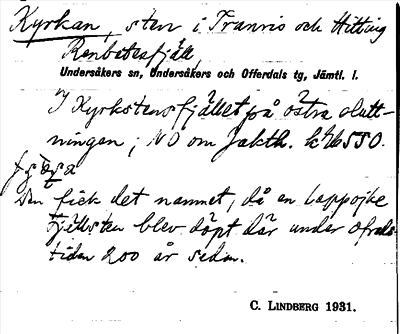 Kyrkan, sten i Tranris och Hitting
Renbetesfjäll,
Undersåkers sn, Undersåkers och Offerdals tg, Jämtl. l.
I Kyrkstensfjället på östra slutt-
ningen, NO om Jakth. kt 6550.
Den fick det namnet, då en lappojke
Fjällsten blev döpt där under ofreds
tiden 200 år sedan.
C. LINDBERG 1931.